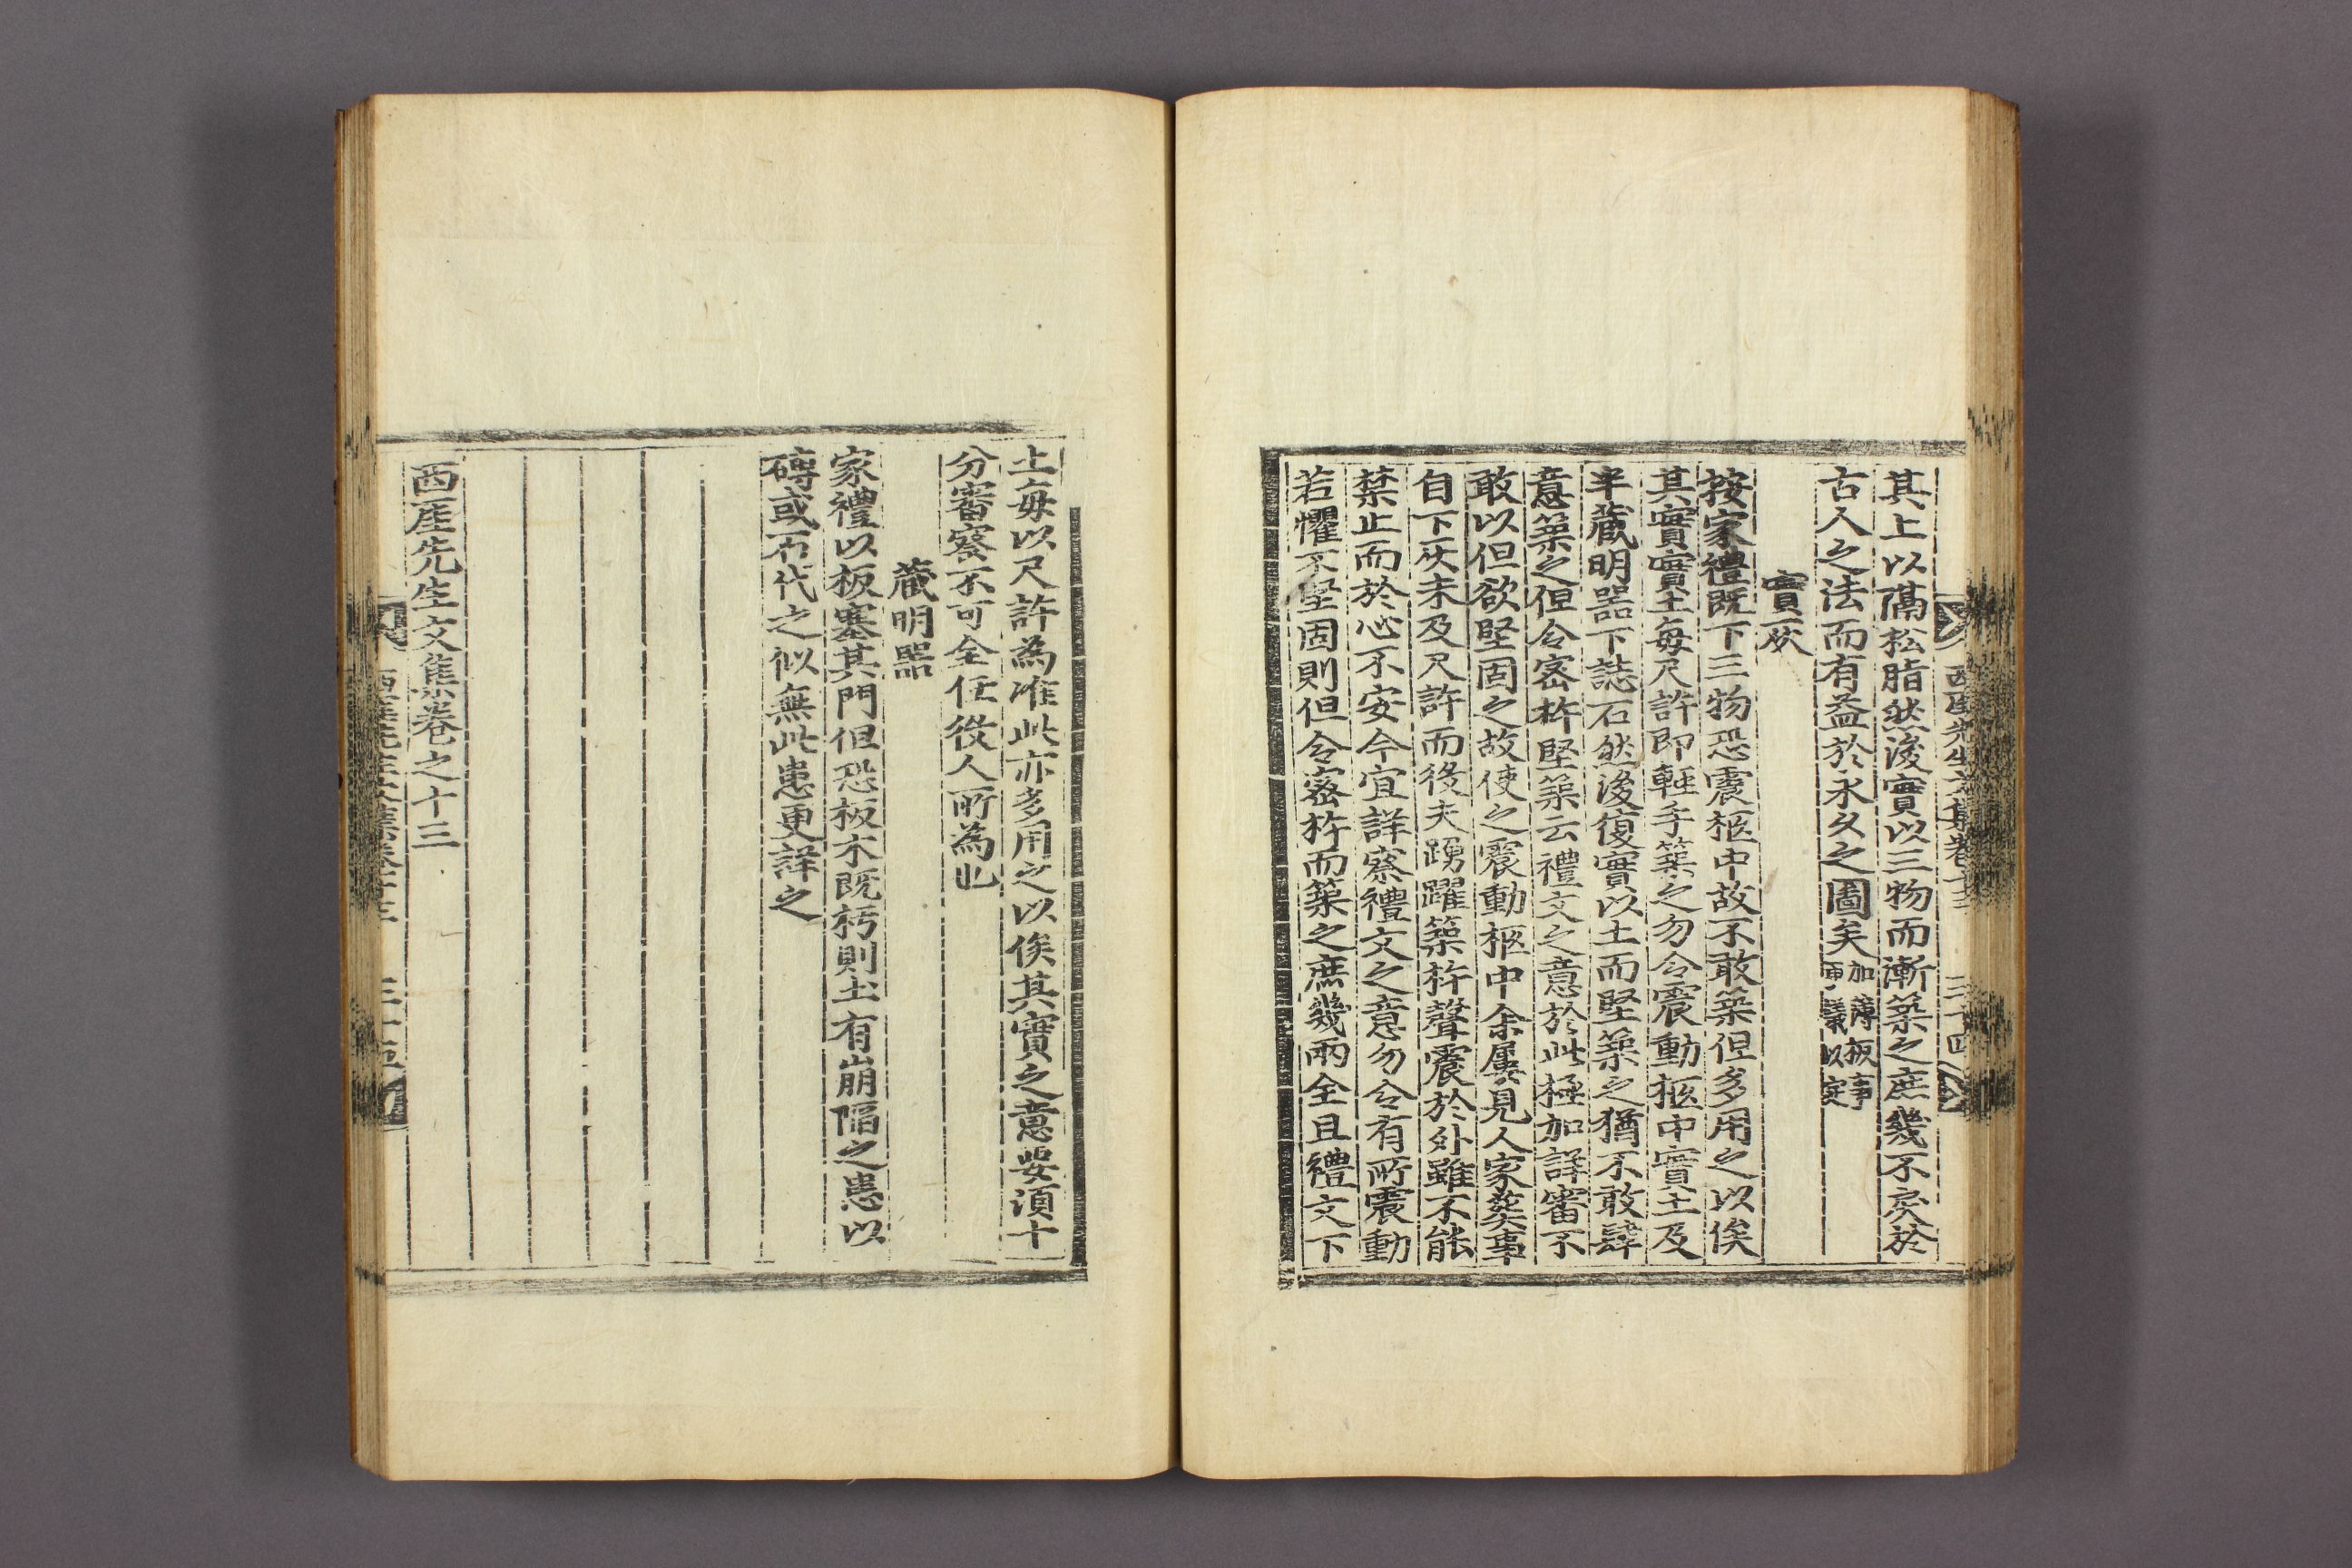 西厓先生文集卷十三 三十四
其上以隔松脂然後實以三物而漸築之庶幾不戾於
古人之法而有益於永久之圖矣加薄板事更議以定
實灰
按家禮旣下三物恐震柩中故不敢築但多用之以俟
其實實土每尺許卽輕手築之勿令震動柩中實土及
半藏明器下誌石然後復實以土而堅築之猶不敢肆
意築之但令密杵堅築云禮文之意於此極加詳審不
敢以但欲堅固之故使之震動柩中余屢見人家葬事
自下灰未及尺許而役夫踴躍築杵聲震於外雖不能
禁止而於心不安今宜詳察禮文之意勿令有所震動
若懼不堅固則但令密杵而築之庶幾兩全且禮文下
土每以尺許爲准此亦多用之以俟其實之意要須十
分審察不可全任役人所爲也
藏明器
家禮以板塞其門但恐板木旣朽則土有崩陷之患以
磚或石代之似無此患更詳之
西厓先生文集卷之十三